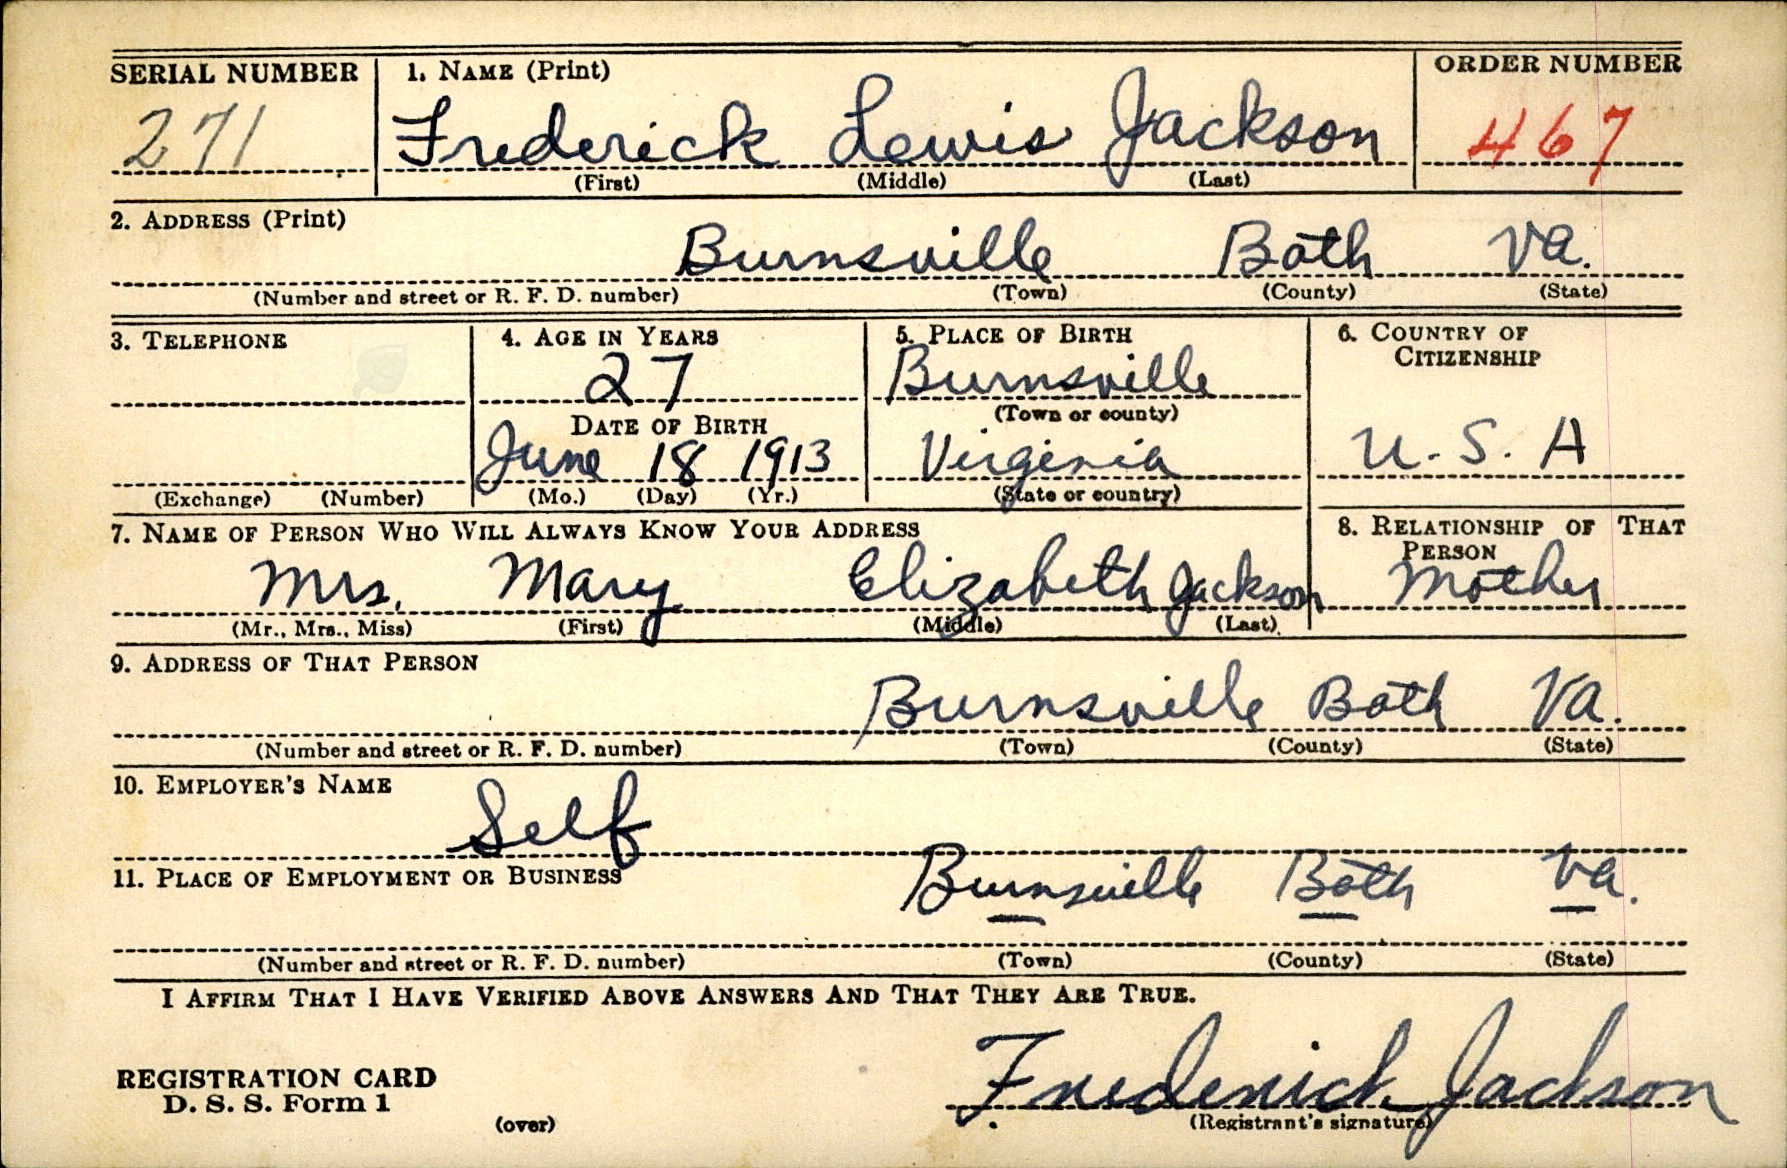 SERIAL NUMBER 1. NAME (Print) ORDER NUMBER
271 Frederick Lewis Jackson 467
(First) (Middle) (Last)
2. ADDRESS (Print)
Burnsville Bath Va.
(Number and street or R. F. D. number) (Town) (County) (State)
3. TELEPHONE 4. AGE IN YEARS 5. PLACE OF BIRTH 6. COUNTRY OF CITIZENSHIP
27 Burnsville
(Town or county)
DATE OF BIRTH
June 18 1913 Virginia U.S.A
(Exchange) (Number) (Mo.) (Day) (Yr.) (State or country)
7. NAME OF PERSON WHO WILL ALWAYS KNOW YOUR ADDRESS 8. RELATIONSHIP OF THAT PERSON
Mrs. Mary Elizabeth Jackson Mother
(Mr., Mrs., Miss) (First) (Middle) (Last)
9. ADDRESS OF THAT PERSON
Burnsville Bath Va.
(Number and street or R. F. D. number) (Town) (County) (State)
10. EMPLOYER'S NAME
Self
11. PLACE OF EMPLOYMENT OR BUSINESS
Burnsville Bath Va.
(Number and street or R. F. D. number) (Town) (County) (State)
I AFFIRM THAT I HAVE VERIFIED ABOVE ANSWERS AND THAT THEY ARE TRUE.
Frederick Jackson
REGISTRATION CARD
D. S. S. Form 1
(over) (Registrant's signature)